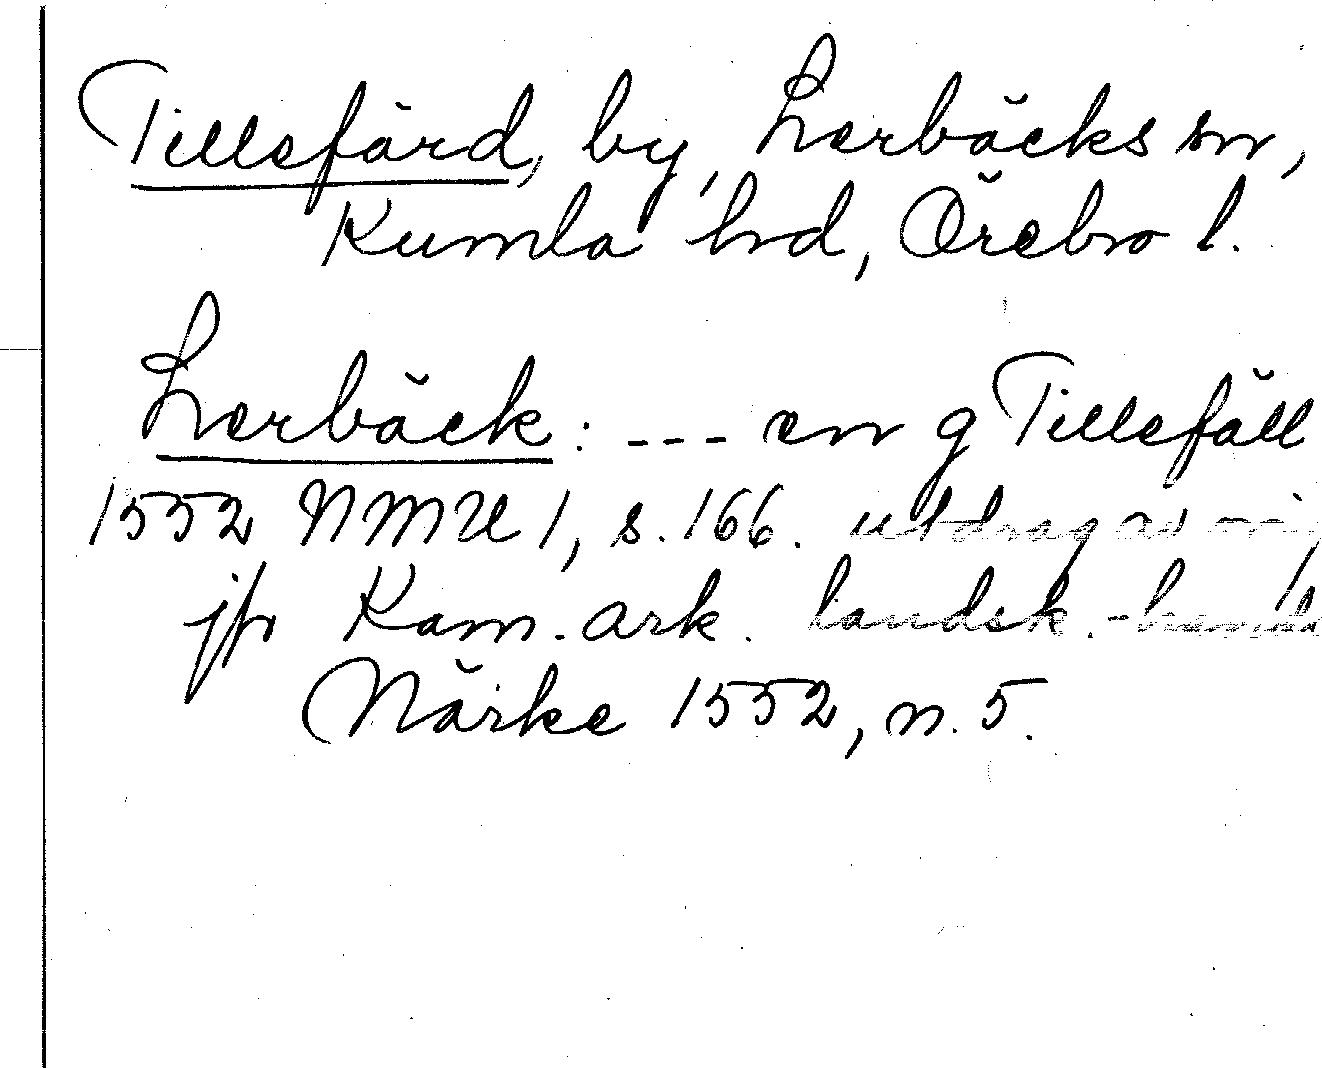 Tillsfärd, by, Lerbäcks sn,
Kumla hd, Örebro l.
Lerbäck: --- en g Tillefäll
1552 NMU 1, s. 166. utdrag av
jfr Kam. ark. landsk.-handl
Närke 1552, n. 5.